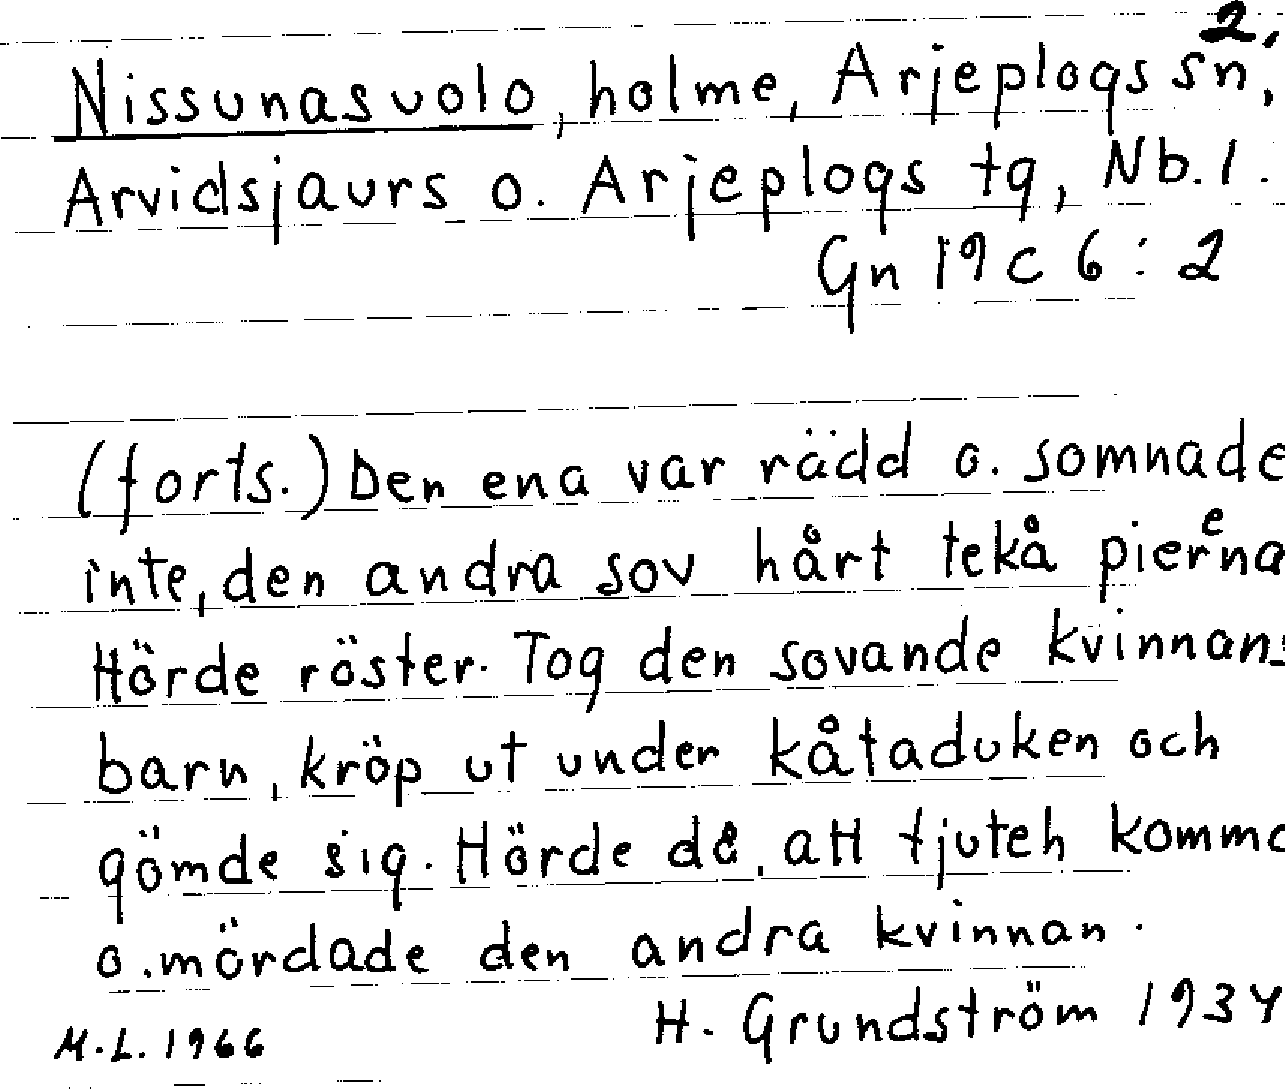 2.
Nissunasuolo, holme, Arjeplogs sn,
Arvidsjaurs o. Arjeplogs tg, Nb. l.
Gn 19 c 6 : 2
(forts.) Den ena var rädd o. somnade
inte, den andra sov hårt tekå
Hörde röster. Tog den sovande kvinnans
barn, kröp ut under kåtaduken och
gömde sig. Hörde då, att tjuteh komma
o. mördade den andra kvinnan.
H. Grundström 1934
M.L. 1966